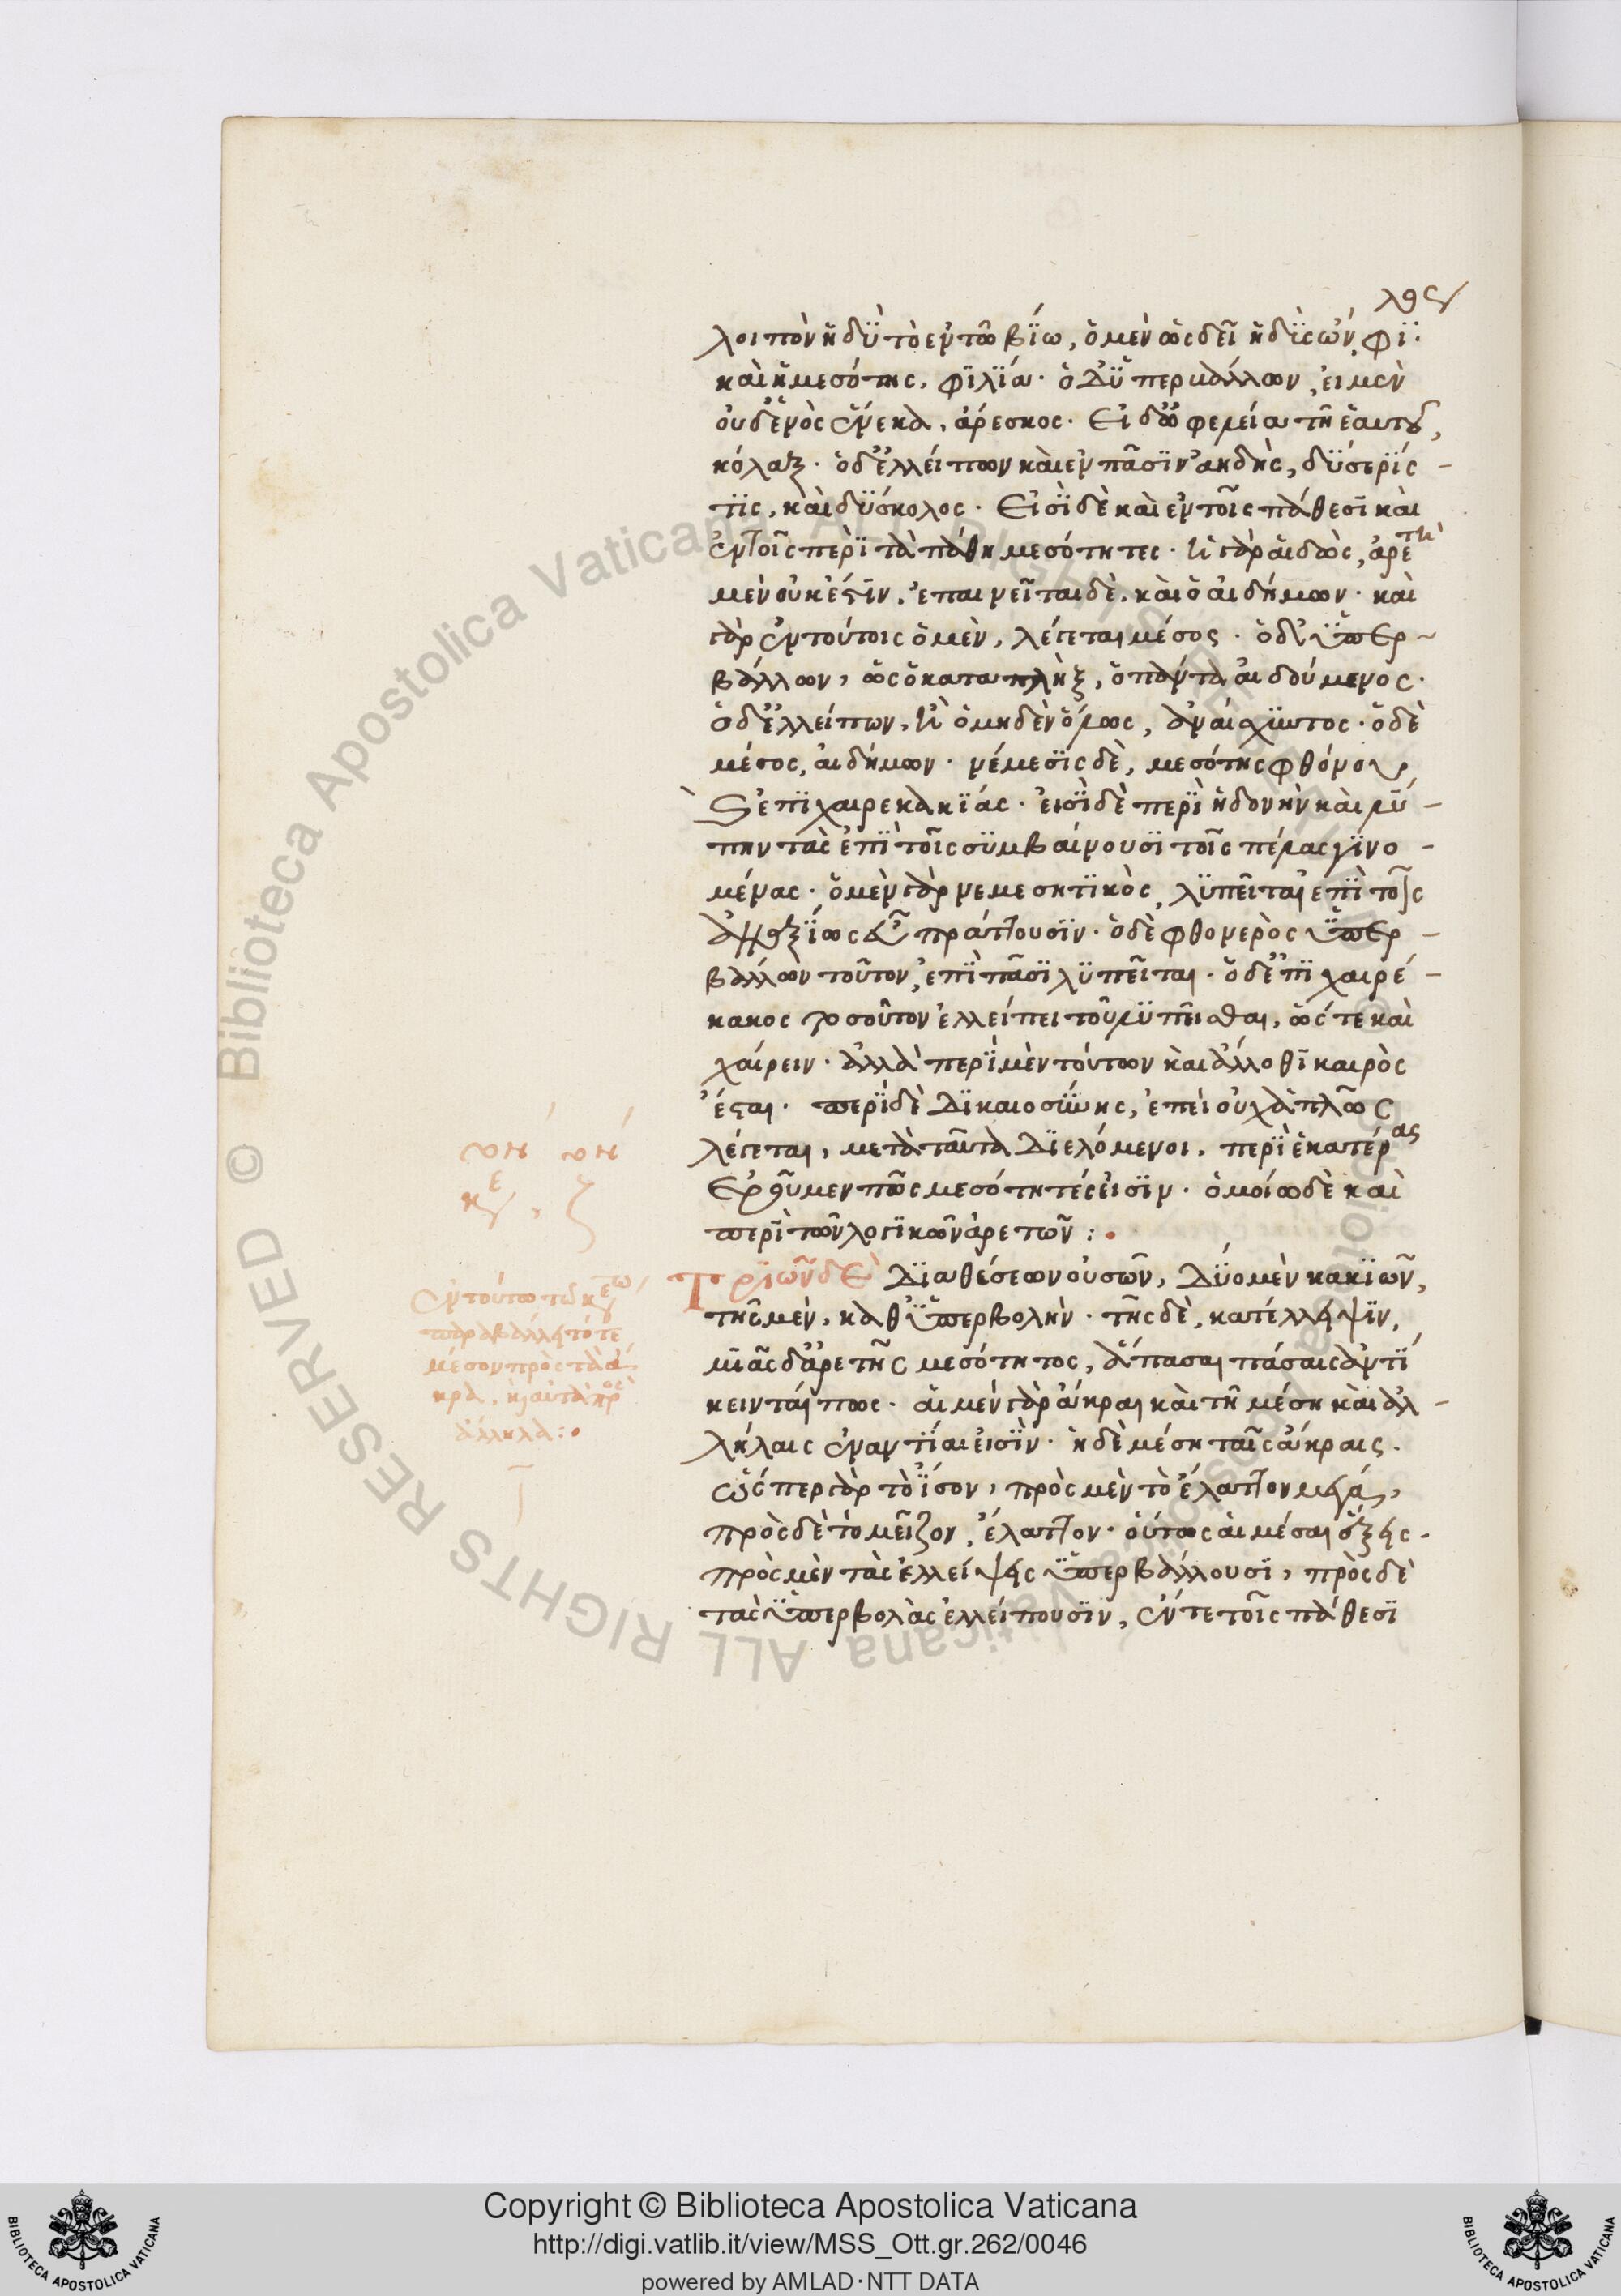 λος
λοιπὸν ἡδὺ τὸ ἐν τῶ βίω, ὁ μὲν ὡς δεῖ ἡδὺς ὢν, φί
καὶ ἡ μεσότης, φιλία· ὁ δ' ὑπερβάλλων, εἰ μὲν
οὐδενὸς ἕνεκα, ἄρεσκος· εἰ δ' ὠφελεία τῆ ἑαυτοῦ,
κόλαξ· ὁ δ' ἐλλείπων καὶ ἐν πᾶσιν ἀηδὴς, δύσερίς -
τις, καὶ δύσκολος· Εἰσὶ δὲ καὶ ἐν τοῖς πάθεσι καὶ
ἐν τοῖς περὶ τὰ πάθη μεσότητες· ἡ γὰρ αἰδὼς, ἀρετὴ
μὲν οὐκ ἔστιν, ἐπαινεῖται δὲ καὶ ὁ αἰδήμων· καὶ
γὰρ ἐν τούτοις ὁ μὲν, λέγεται μέσος· ὁ δ' ὑπερ -
βάλλων, ὡς ὁ καταπλὴξ, ὁ πάντα αἰδούμενος·
ὁ δ' ἐλλείπων, ἢ ὁ μηδὲν ὅλως, ἀναίσχυντος· ὁ δὲ
μέσος, αἰδήμων· νέμεσις δὲ, μεσότης φθόνου
καὶ ἐπιχαιρεκακίας· εἰσὶ δὲ περὶ ἡδονὴν καὶ λύ -
πην τὰς ἐπὶ τοῖς συμβαίνουσι τοῖς πέλας γινο -
μένας· ὁ μὲν γὰρ νεμεσητικὸς, λυπεῖται ἐπὶ τοῖς
ἀναξίως εὖ πράττουσιν· ὁ δὲ φθονερὸς ὑπερ -
βάλλων τοῦτον, ἐπὶ πᾶσι λυπεῖται· ὁ δ' ἐπιχαιρέ -
κακος τοσοῦτον ἐλλείπει τοῦ λυπεῖσθαι, ὥστε καὶ
χαίρειν· ἀλλὰ περὶ μὲν τούτων καὶ ἄλλοθι καιρὸς
ἔσται· περὶ δὲ δικαιοσύνης, ἐπεὶ οὐχ ἁπλῶς
λέγεται, μετὰ ταῦτα διελόμενοι, περὶ ἑκατέρας
ἐροῦμεν πῶς μεσότητές εἰσιν· ὁμοίω δὲ καὶ
περὶ τῶν λογικῶν ἀρετῶν :·
Τριῶν δὲ διαθέσεων οὐσῶν, δύο μὲν κακιῶν,
τῆς μὲν, καθ' ὑπερβολὴν· τῆς δὲ, κατ' ἔλλειψιν,
μιᾶς δ' ἀρετῆς μεσότητος, ἅπασαι πάσαις ἀντί
κεινταί πως· αἱ μὲν γὰρ ἄκραι καὶ τῆ μέση καὶ ἀλ -
λήλαις ἐναντίαι εἰσὶν· ἡ δὲ μέση ταῖς ἄκραις·
ὥσπερ γὰρ τὸ ἴσον, πρὸς μὲν τὸ ἔλαττον μεῖζον,
πρὸς δὲ τὸ μεῖζον, ἔλαττον· οὕτως αἱ μέσαι ἕξεις -
πρὸς μὲν τὰς ἐλλείψεις ὑπερβάλλουσι, πρὸς δὲ
τὰς ὑπερβολὰς ἐλλείπουσιν, ἔν τε τοῖς πάθεσι
ἐν τούτω τῶ κεφω
παραβάλλει τό τε
μέσον πρὸς τὰ ἄ
κρα, καὶ αὐτὰ πρὸς
ἄλληλα :·
Copyright © Biblioteca Apostolica Vaticana
http://digi.vatlib.it/view/MSS_Ott.gr.262/0046
powered by AMLAD·NTT DATA
BIBLIOTECA APOSTOLICA VATICANA
BIBLIOTECA APOSTOLICA VATICANA
© Biblioteca Apostolica Vaticana ALL RIGHTS RESERVED